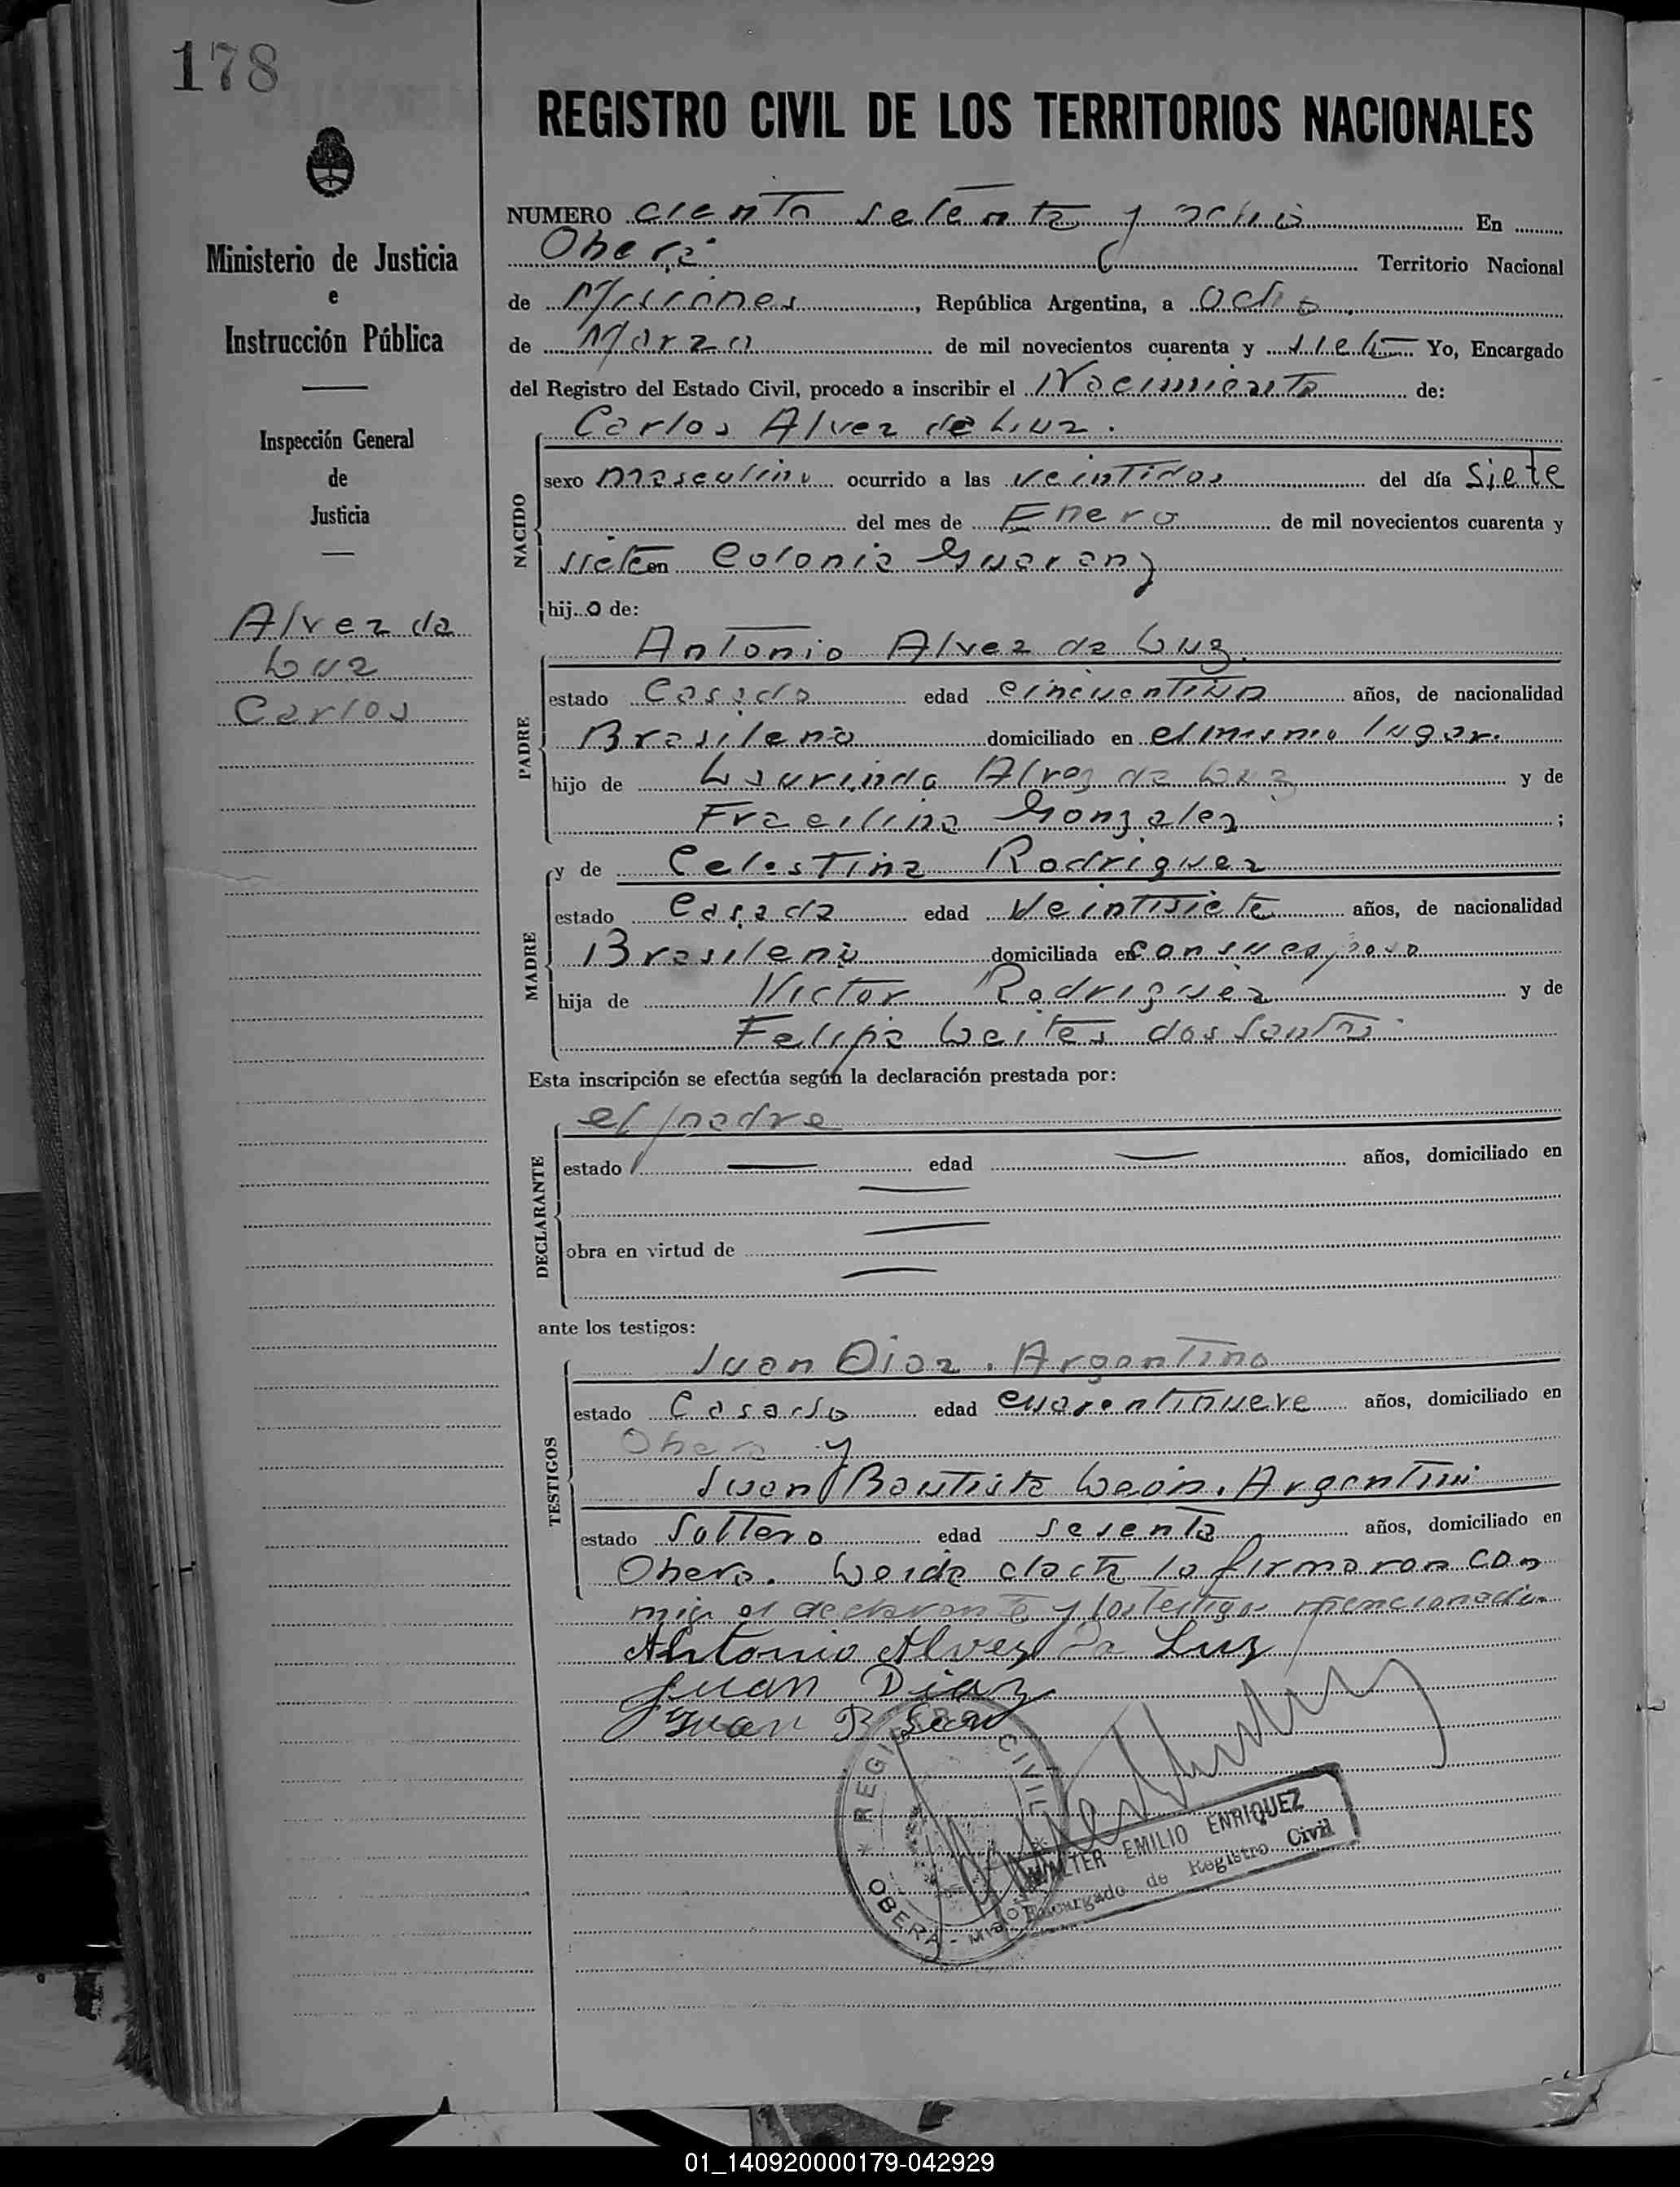 178
REGISTRO CIVIL DE LOS TERRITORIOS NACIONALES
Ministerio de Justicia
e
Instrucción Pública
Inspección General
de
Justicia
Alvez da
Luz
Carlos
NUMERO ciento setenta y ocho En
Oberá Territorio Nacional
de Misiones, República Argentina, a ocho
de Marzo de mil novecientos cuarenta y siete Yo, Encargado
del Registro del Estado Civil, procedo a inscribir el Nacimiento de:
Carlos Alvez de Luz.
NACIDO
sexo masculino ocurrido a las veintidos del día siete
del mes de Enero de mil novecientos cuarenta y
siete en Colonia Guarany
hijo de:
PADRE
Antonio Alvez da Luz.
estado Casado edad cincuentiun años, de nacionalidad
Brasileno domiciliado en el mismo lugar.
hijo de Laurindo Alvez da Luz y de
Gonzalez ;
MADRE
y de Celestina Rodriguez
estado Casada edad Veintisiete años, de nacionalidad
Brasilena domiciliada en con su esposo
hija de Victor Rodriguez y de
Felipa Leites dos Santos
Esta inscripción se efectúa según la declaración prestada por:
DECLARANTE
el padre
estado edad años, domiciliado en
obra en virtud de
ante los testigos:
TESTIGOS
Juan Diaz. Argentino
estado Casado edad cuarentinueve años, domiciliado en
Obera y
Juan Bautista Leon. Argentino
estado Soltero edad sesenta años, domiciliado en
Obera. Leida el acta la firmaron con
migo el declarante y los testigos mencionados
Antonio Alvez Da Luz
Juan Diaz
Juan B Leon
REGISTRO CIVIL
OBERA - MISIONES
WALTER EMILIO ENRIQUEZ
Encargado de Registro Civil
01_140920000179-042929